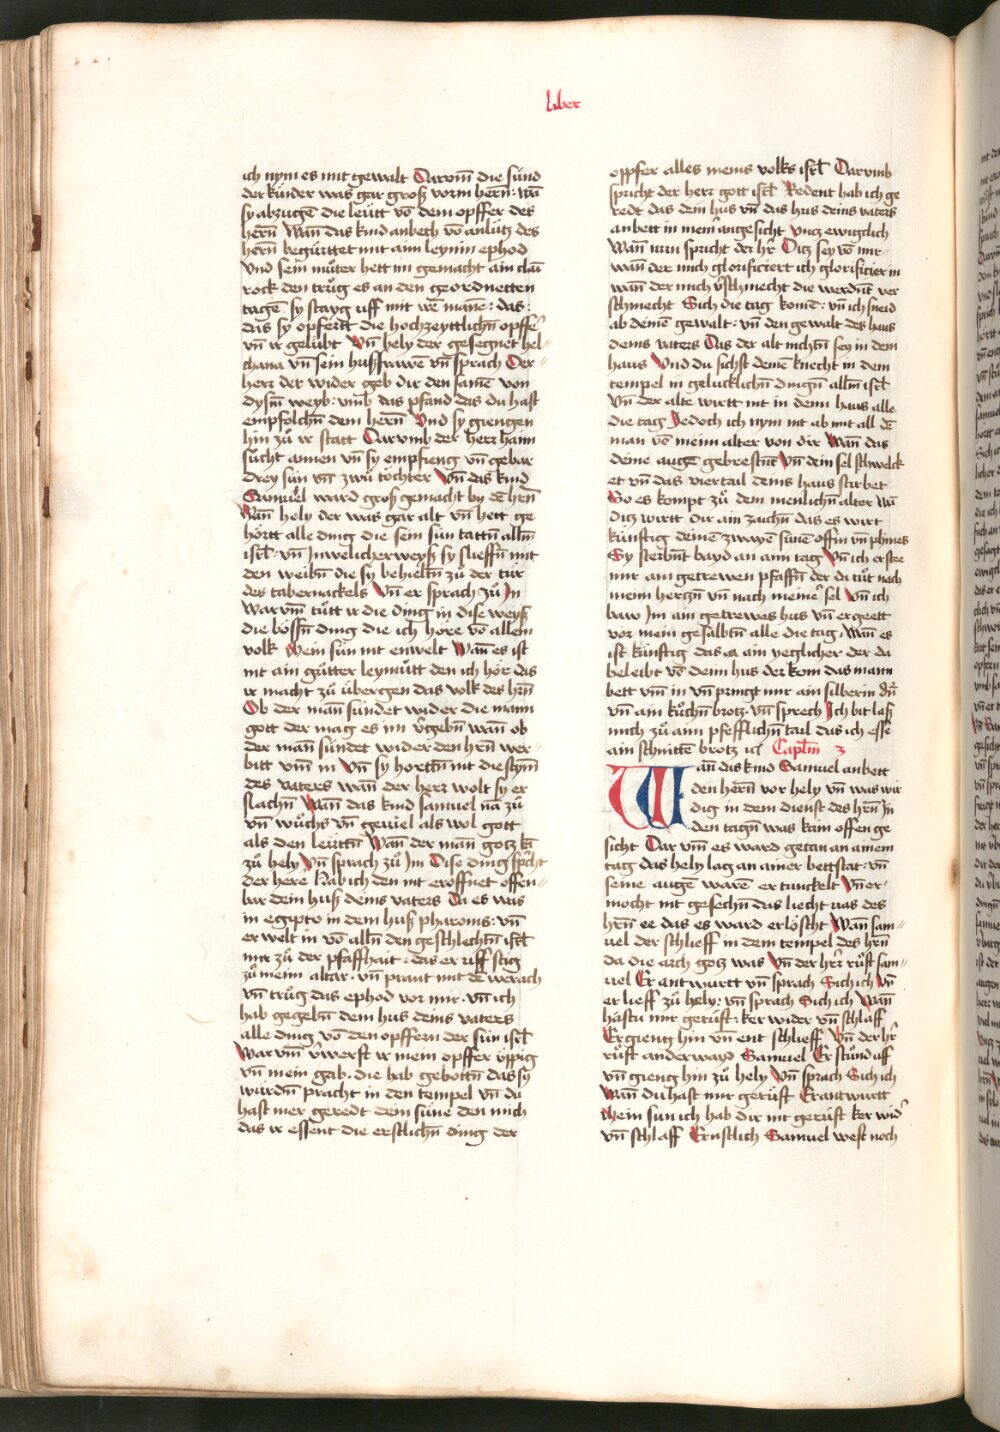 liber
ich nym es mit gewalt Darvm̄ die sünd
der kinder was gar groß vorm herñ: wañ
sy abzugē die leütt vō dem opffer des
herñ Wañ das kind anbeth vō anlütz des
herñ begürttet mit aim leynin ephod
Vnd sein můter hett im gemacht ain clain
rock den trůg es an den geordnetten
tagē. sy stayg uff mit irē manē: das:
das sy opfertt die hochzeyttlichñ opffer
vñ ir gelübt Vñ hely der gesegnet hel=
chana vñ sein hußfrawē vñ sprach Der
herr der wider geb dir den samē von
dysm̄ weyb: vmb das pfand das du hast
empfolchñ dem herñ Vnd sy giengen
hin zů ir statt Darvmb der herr haim
sücht annen vñ sy empfieng vñ gebar
drey sün vñ zwů töchter Vñ das kind
Samuel ward groß gemacht by dē hrñ
Wañ hely der was gar alt vñ hett ge
hörtt alle ding die sein sün tattñ allm̄
isrl̄: vñ Jnwelicher weyß sy slieffñ mit
den weibñ die sy behieltñ zů der tür
des tabernackels Vñ er sprach zů Jn
Warvm̄ tůtt ir die ding in dise weyß
die bössñ ding die ich höre vō allem
volk Mein sün nit enwelt Wañ es ist
nit ain gůtter leymůtt den ich hör das
ir macht zů übergen das volk des hrñ
Ob der man sündet wider die mann
gott der mag es im v̄gebñ wañ ob
der man sündet wider den hrñ wer=
bitt vm̄ in Vñ sy hortñ nit die stym̄
des vaters wañ der herr wolt sy er
slachñ Wañ das kind samuel nā zů
vñ wůchs vñ geviel als wol gott
als den leüttñ Wañ der man gotz kā
zů hely Vñ sprach zů Jm Dise ding spcht
der here Hab ich den nit eröffnet offen=
bar dem huß deins vaters Da es was
in egipto in dem huß pharonis: vñ
erwelt in vō allñ den geschlechtñ isrl̄
mir zů der pfaffhait. das er uff stig
zů meim altar. vñ prant mir dē werach
vñ trůg das ephod vor mir. vñ ich
hab gegebñ dem hus deins vaters
alle ding vō den opffern der sün isrl̄
Warvm̄ v̄werft ir mein opffer üppig
vñ mein gab. die hab gebottñ das sy
würdñ pracht in den tempel vñ du
hast mer geredt dein sünē den mich
das ir essent die erstlichñ ding der
oppfer alles meins volks isrl̄ Darvmb
spricht der herr gott isrl̄ Redent hab ich ge
redt das dem hus vñ das hus deins vaters
anbett in meim̄ angesicht Vncz ewigclich
Wañ nun spricht der hr̄ Ditz sey vō mir=
wañ der mich glorificiert ich glorificier in
wañ der mich v̄schmecht die werdñt ver
schmecht Sich die tag komē: vñ ich sneid
ab deinē gewalt: vñ den gewalt des haus
deins vaters Das der alt nichtñ sey in dem
haus Vnd du sichst deinē knecht in dem
tempel in gelucklichñ dingñ allm̄ isrl̄
Vñ der alte wirtt nit in deim haus alle
die tag Jedoch ich nym nit ab mit all dē
man vō meim alter von dir Wañ das
deine augē gebrestñt Vñ dein sel schwelck
et vñ das viertail deins haus stirbet
So es kompt zů dem menlichñ alter Wañ
ditz wirtt dir ain zaichñ das es wirt
künftig deinē zwayē sünē offin vñ phines
Sy sterbñt bayd an aim tag Vñ ich erstee
mir ain getrewen pfaffñ der da tüt nach
meim hertzñ vñ nach meiner sel Vñ ich
baw Jm ain getrewes hus vñ ergeett
vor mein gesalbtñ alle die tag. Wañ es
ist künftig das ain yeglicher der da
beleibt vō deim hus der kom das mann
bett vm̄ in vñ pringt mir ain silberin dñr̄
vñ ain kůchñ brotz. vñ sprech Jch bit laß
mich zů aim pfefflichñ tail das ich esse
ain schnittē brotz ic Captlm̄ 3
Wañ das kind Samuel anbett
den herñ vor hely vñ was wir
dig in dem dienst des hrñ Jn
den tagñ was kain offen ge
sicht Dar vm̄ es ward getan an ainem
tag das hely lag an ainer bettstat: vñ
seine augē warē ertunckelt Vñ er=
mocht nit gesechñ das liecht uas des
hrñ ee das es ward erlöscht Wañ sam=
uel der schlieff in dem tempel des hrñ
da die arch gotz was Vñ der hrr̄ růft sam=
uel Er antwurtt vñ sprach Sich ich Vñ
er lieff zů hely: vñ sprach Sich ich Wañ
hastu mir gerüft: ker wider vñ schlaff
Er gieng hin vñ ent schlieff Vñ der hr̄
rüft anderwayd Samuel Er stůnd uff
vñ gieng hin zů hely Vñ sprach Sich ich
Wañ du hast mir gerüft Er antwurtt
Mein sun ich hab dir nit gerüft ker wid̄
vñ schlaff Ernstlich Samuel west noch